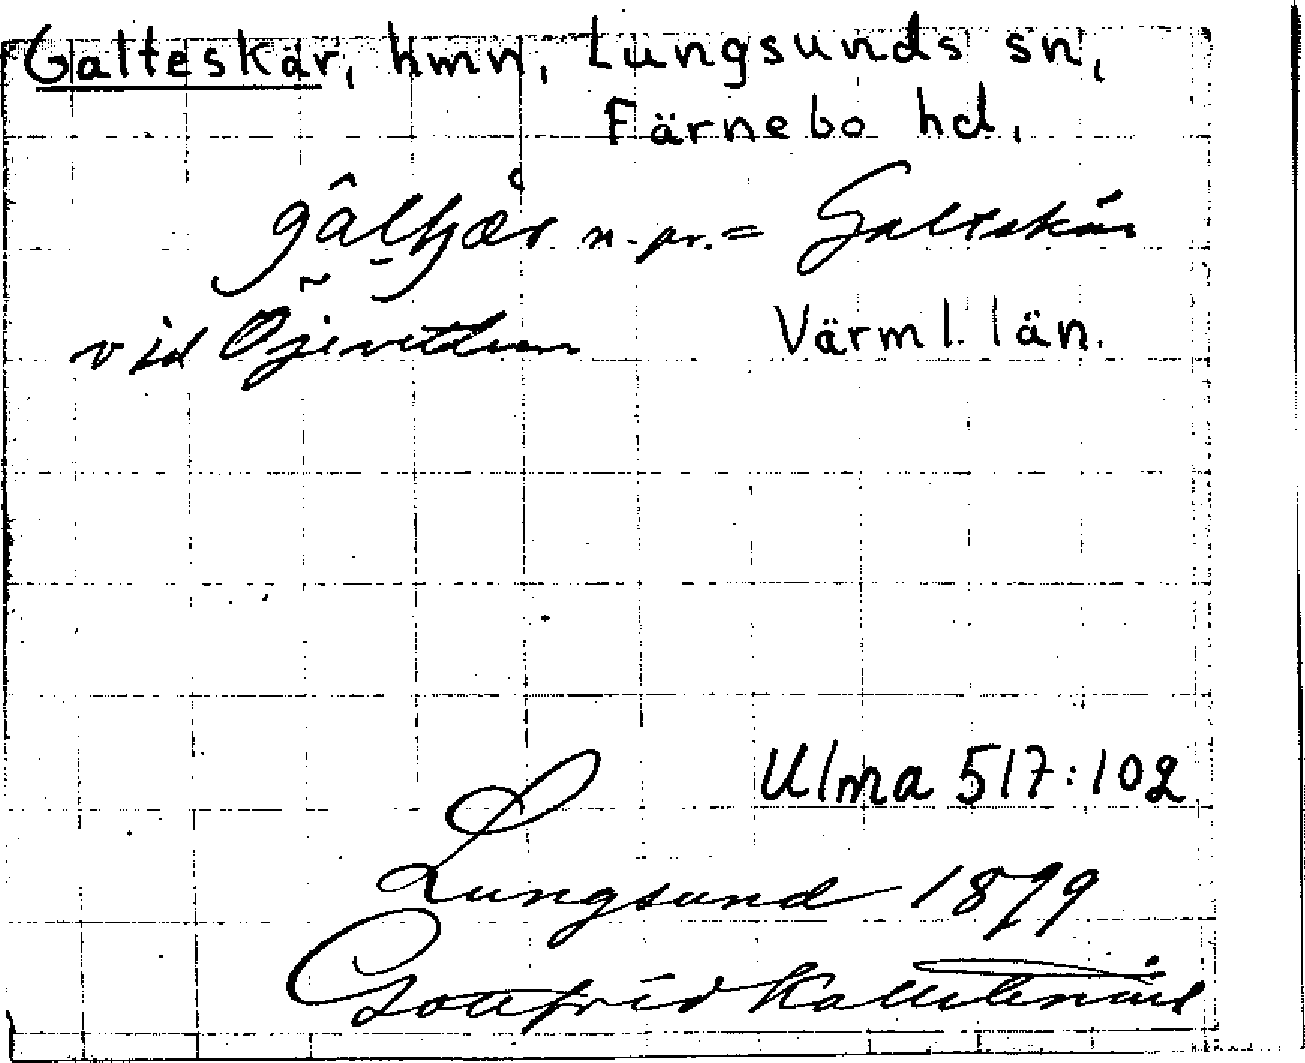 Galteskär, hmn, Lungsunds sn,
Färnebo hd.
n. pr. = Galteskär
vid Öjevettern Värml. län.
Ulma 517:102
Lungsund 1879
Gottfrid Kallstenius